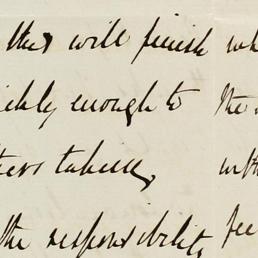 this will finish wh
ickly enough to the
ters taken, with
the responsibility fee